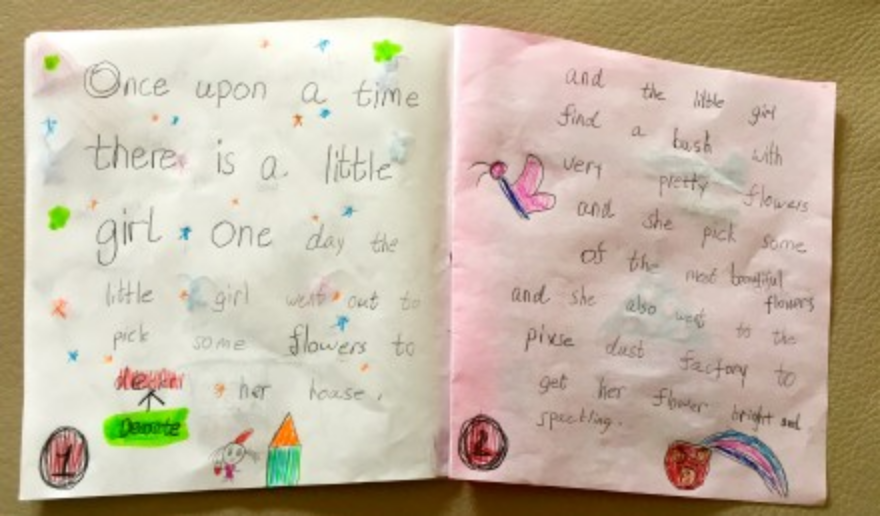 Once upon a time
there is a little
girl one day the
little girl went out to
pick some flowers to
her house.
Decote
1
and the little girl
find a bush with
very pretty flowers
and she pick some
of the most beautiful
flowers
and she also went to the
pixse dust factory to
get her flower bright and
spactling.
2